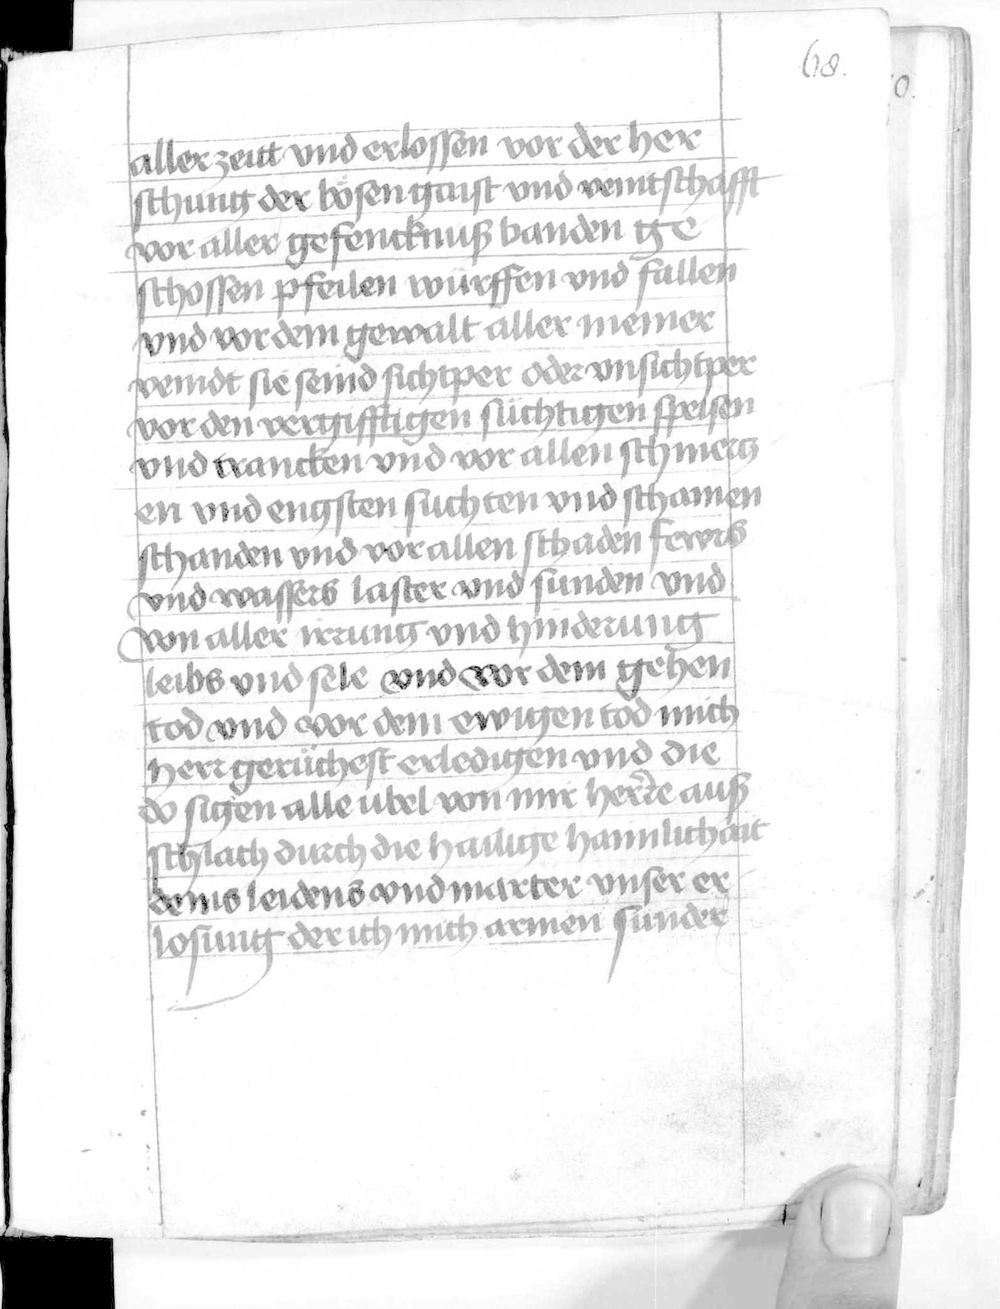 68.
0.
aller zeitt vnd erlossen vor der her
schung der bösen gaist vnd veintschafft
vor aller gefencknuß banden ge
schossen pfeilen würffen vnd fallen
vnd vor dem gewalt aller meiner
veindt sie seind sichtper oder vnsichtper
vor den vergifftigen süchtigen speisen
vnd trancken vnd vor allen schmertz
en vnd engsten suchten vnd schamen
schanden vnd vor allen schaden fewrs
vnd wassers laster vnd sunden vnd
von aller irrung vnd hinderung
leibs vnd sele vnd vor dem gehen
tod vnd vor dem ewigen tod mich
herr gerüchest erledigen vnd die
do sigen alle ubel von mir herre auß
schlach durch die hailige haimlichait
deins leidens vnd marter vnser er
losung der ich mich armen sunder